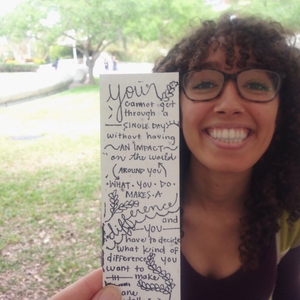 you
cannot get
through a
SINGLE DAY
without having
AN IMPACT
on the world
AROUND YOU
WHAT YOU DO
MAKES A
difference
and
YOU
have to decide
what kind of
difference you
want to
make